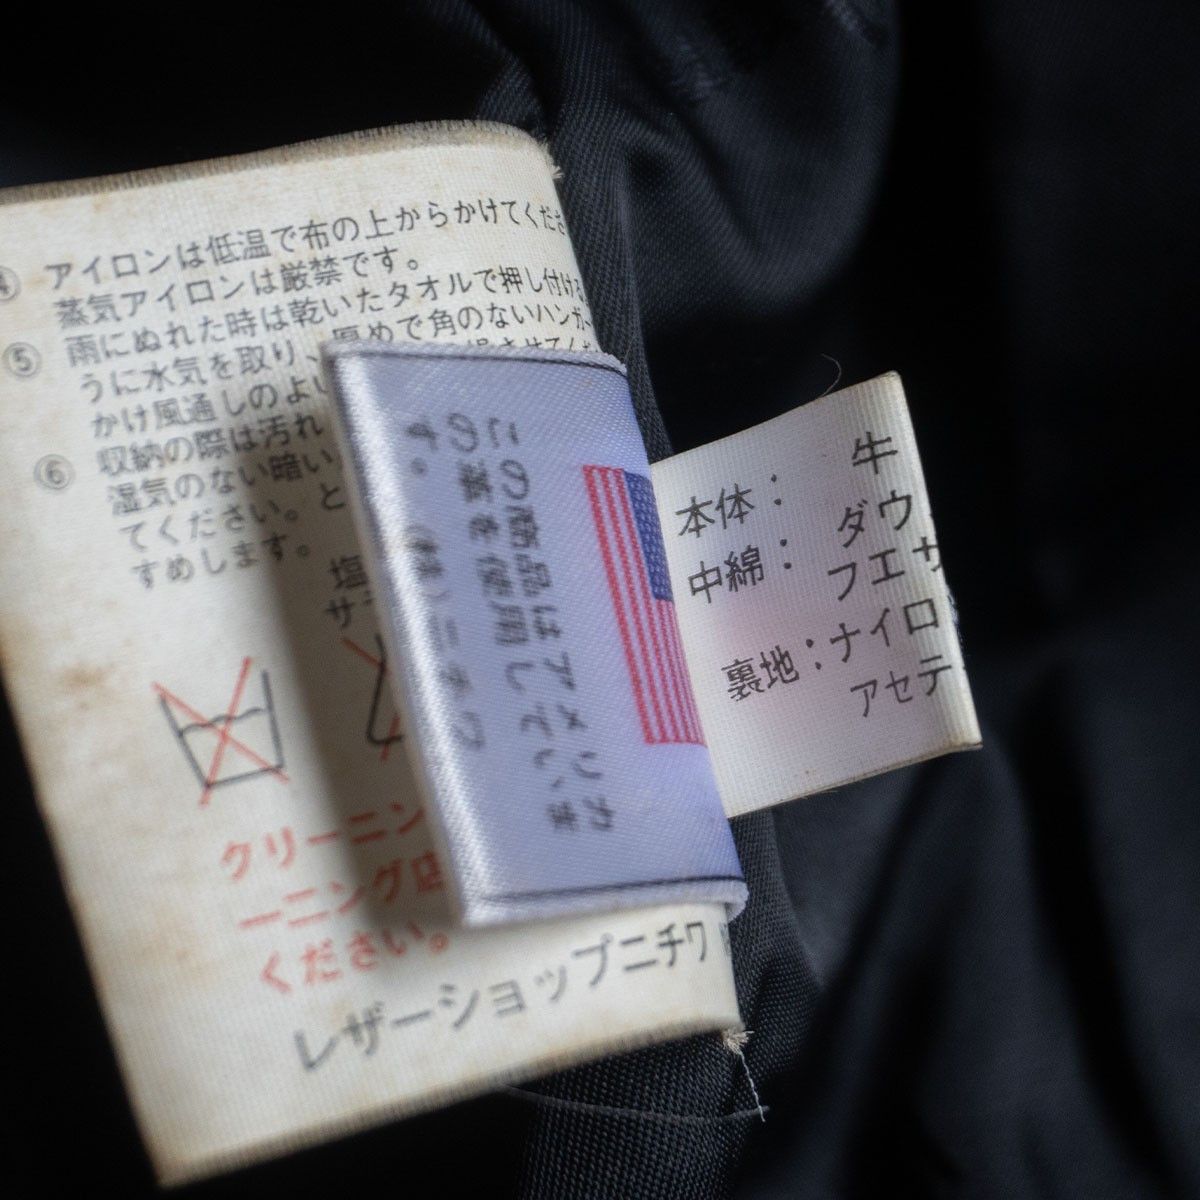 ④ アイロンは低温で布の上からかけてくださ
蒸気アイロンは厳禁です。
⑤ 雨にぬれた時は乾いたタオルで押し付ける
うに水気を取り、厚めで角のないハンガー
かけ風通しのよい
⑥ 収納の際は汚れ
湿気のない暗い
てください。と
すめします。
塩
サラ
クリーニン
ーニング店
ください。
レザーショップニチワ
この商品はアメリカ
の革を使用していま
す。 (株)ニチワ
本体: 牛
中綿: ダウ
フエザ
裏地:ナイロ
アセテ